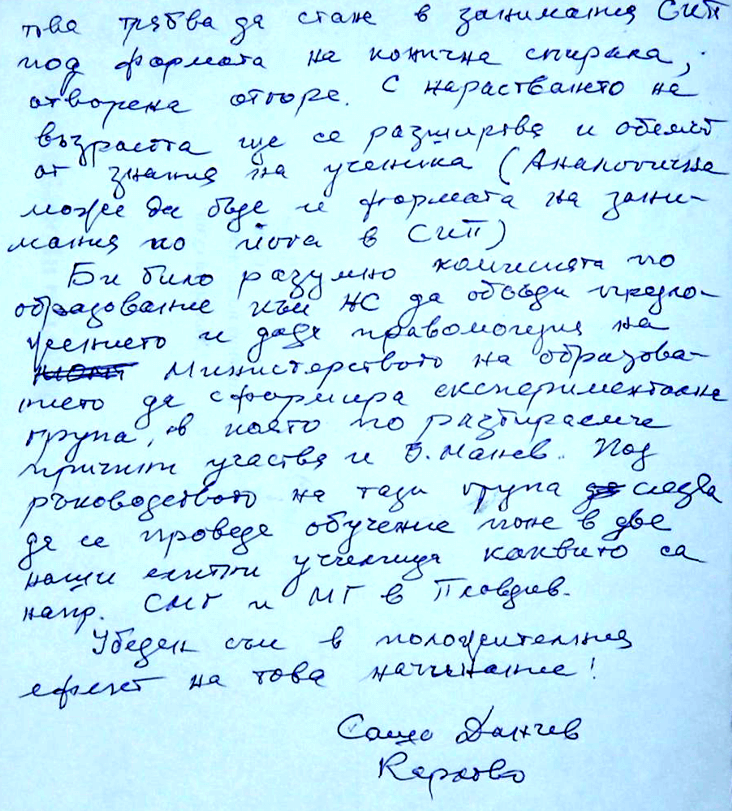 това трябва да стане в занимания СИП
под формата на конична спирала,
отворена отгоре. С нарастването на
възрастта ще се разширява и обемът
от знания на ученика (Аналогична
може да бъде и формата на зани-
мания по йога в СИП)
Би било разумно комисията по
образование към НС да обсъди предло-
жението и даде правомощия на
Министерството на образова-
нието да сформира експериментална
група, в която по разбираеми
причини участва и В. Манев. Под
ръководството на тази група следва
да се проведе обучение поне в две
наши елитни училища каквито са
напр. СМГ и МГ в Пловдив.
Убеден съм в положителния
ефект на това начинание!
Сашо Данчев
Карлово